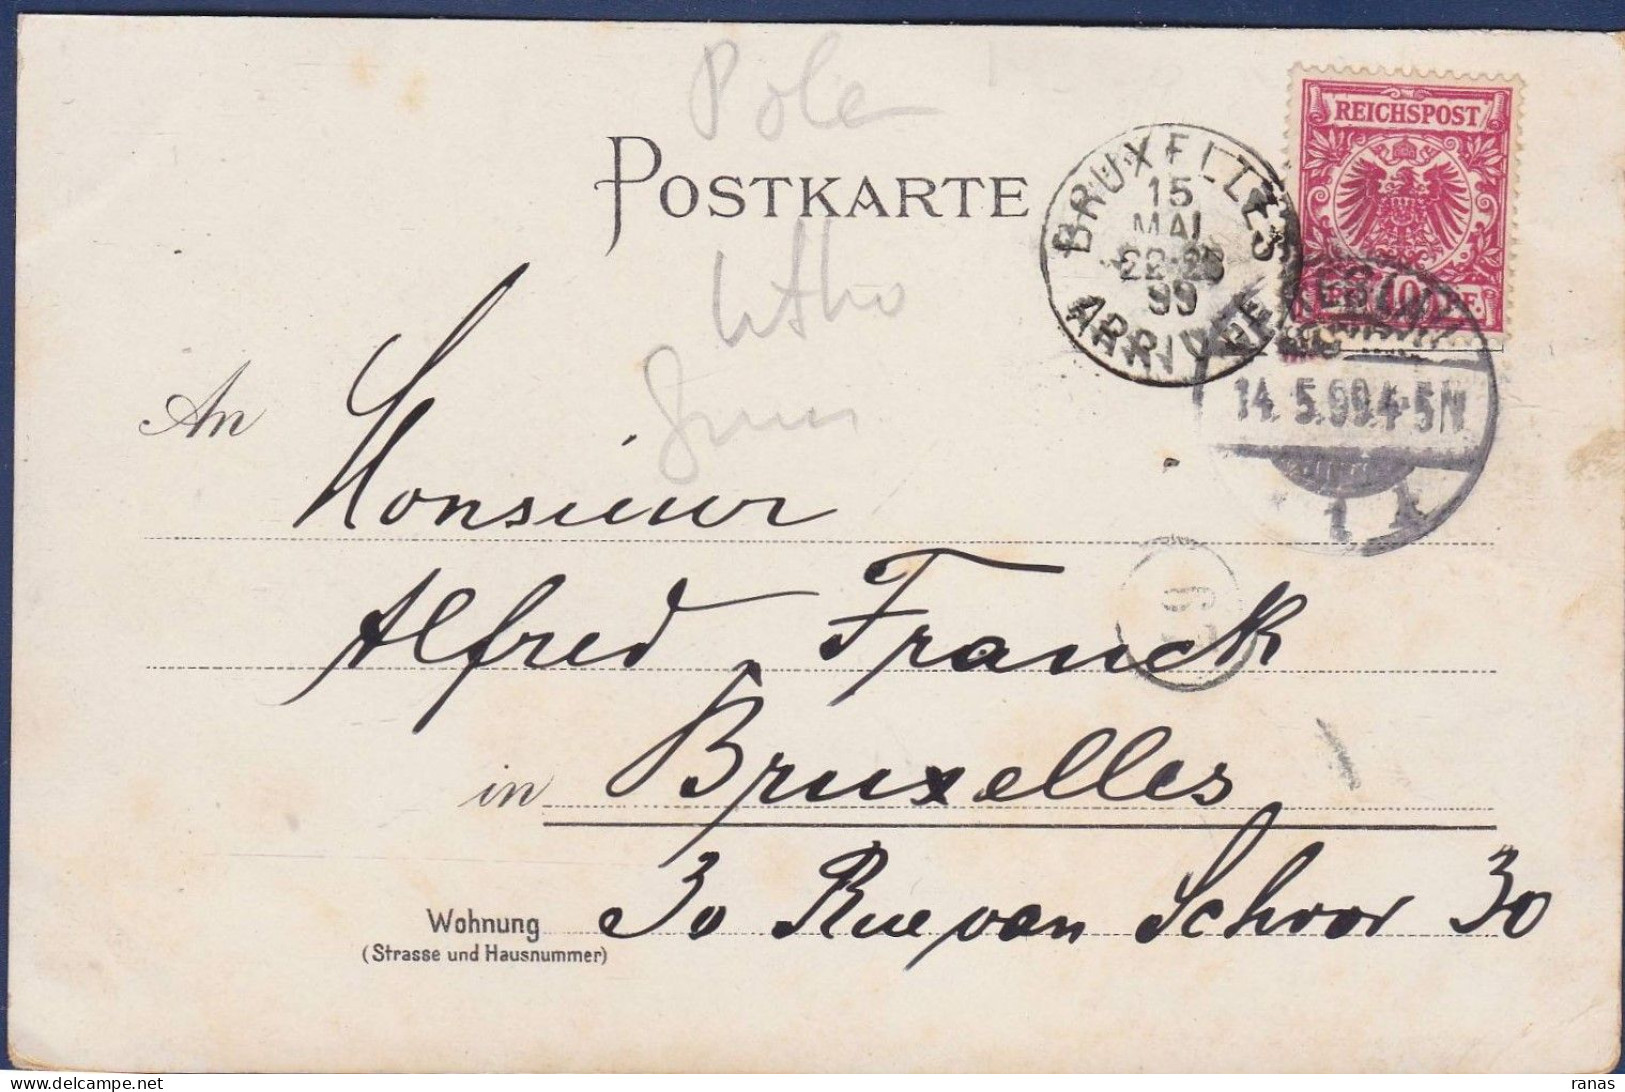 Pole
POSTKARTE
REICHSPOST
BRUXELLES
15
MAI
99
ARRIVEE
10
14. 5.99.4-5N
1 k
Litho
An Monsieur
Alfred Franck
in Bruxelles
Wohnung 30 Rue van Schoor 30
(Strasse und Hausnummer)
ranas